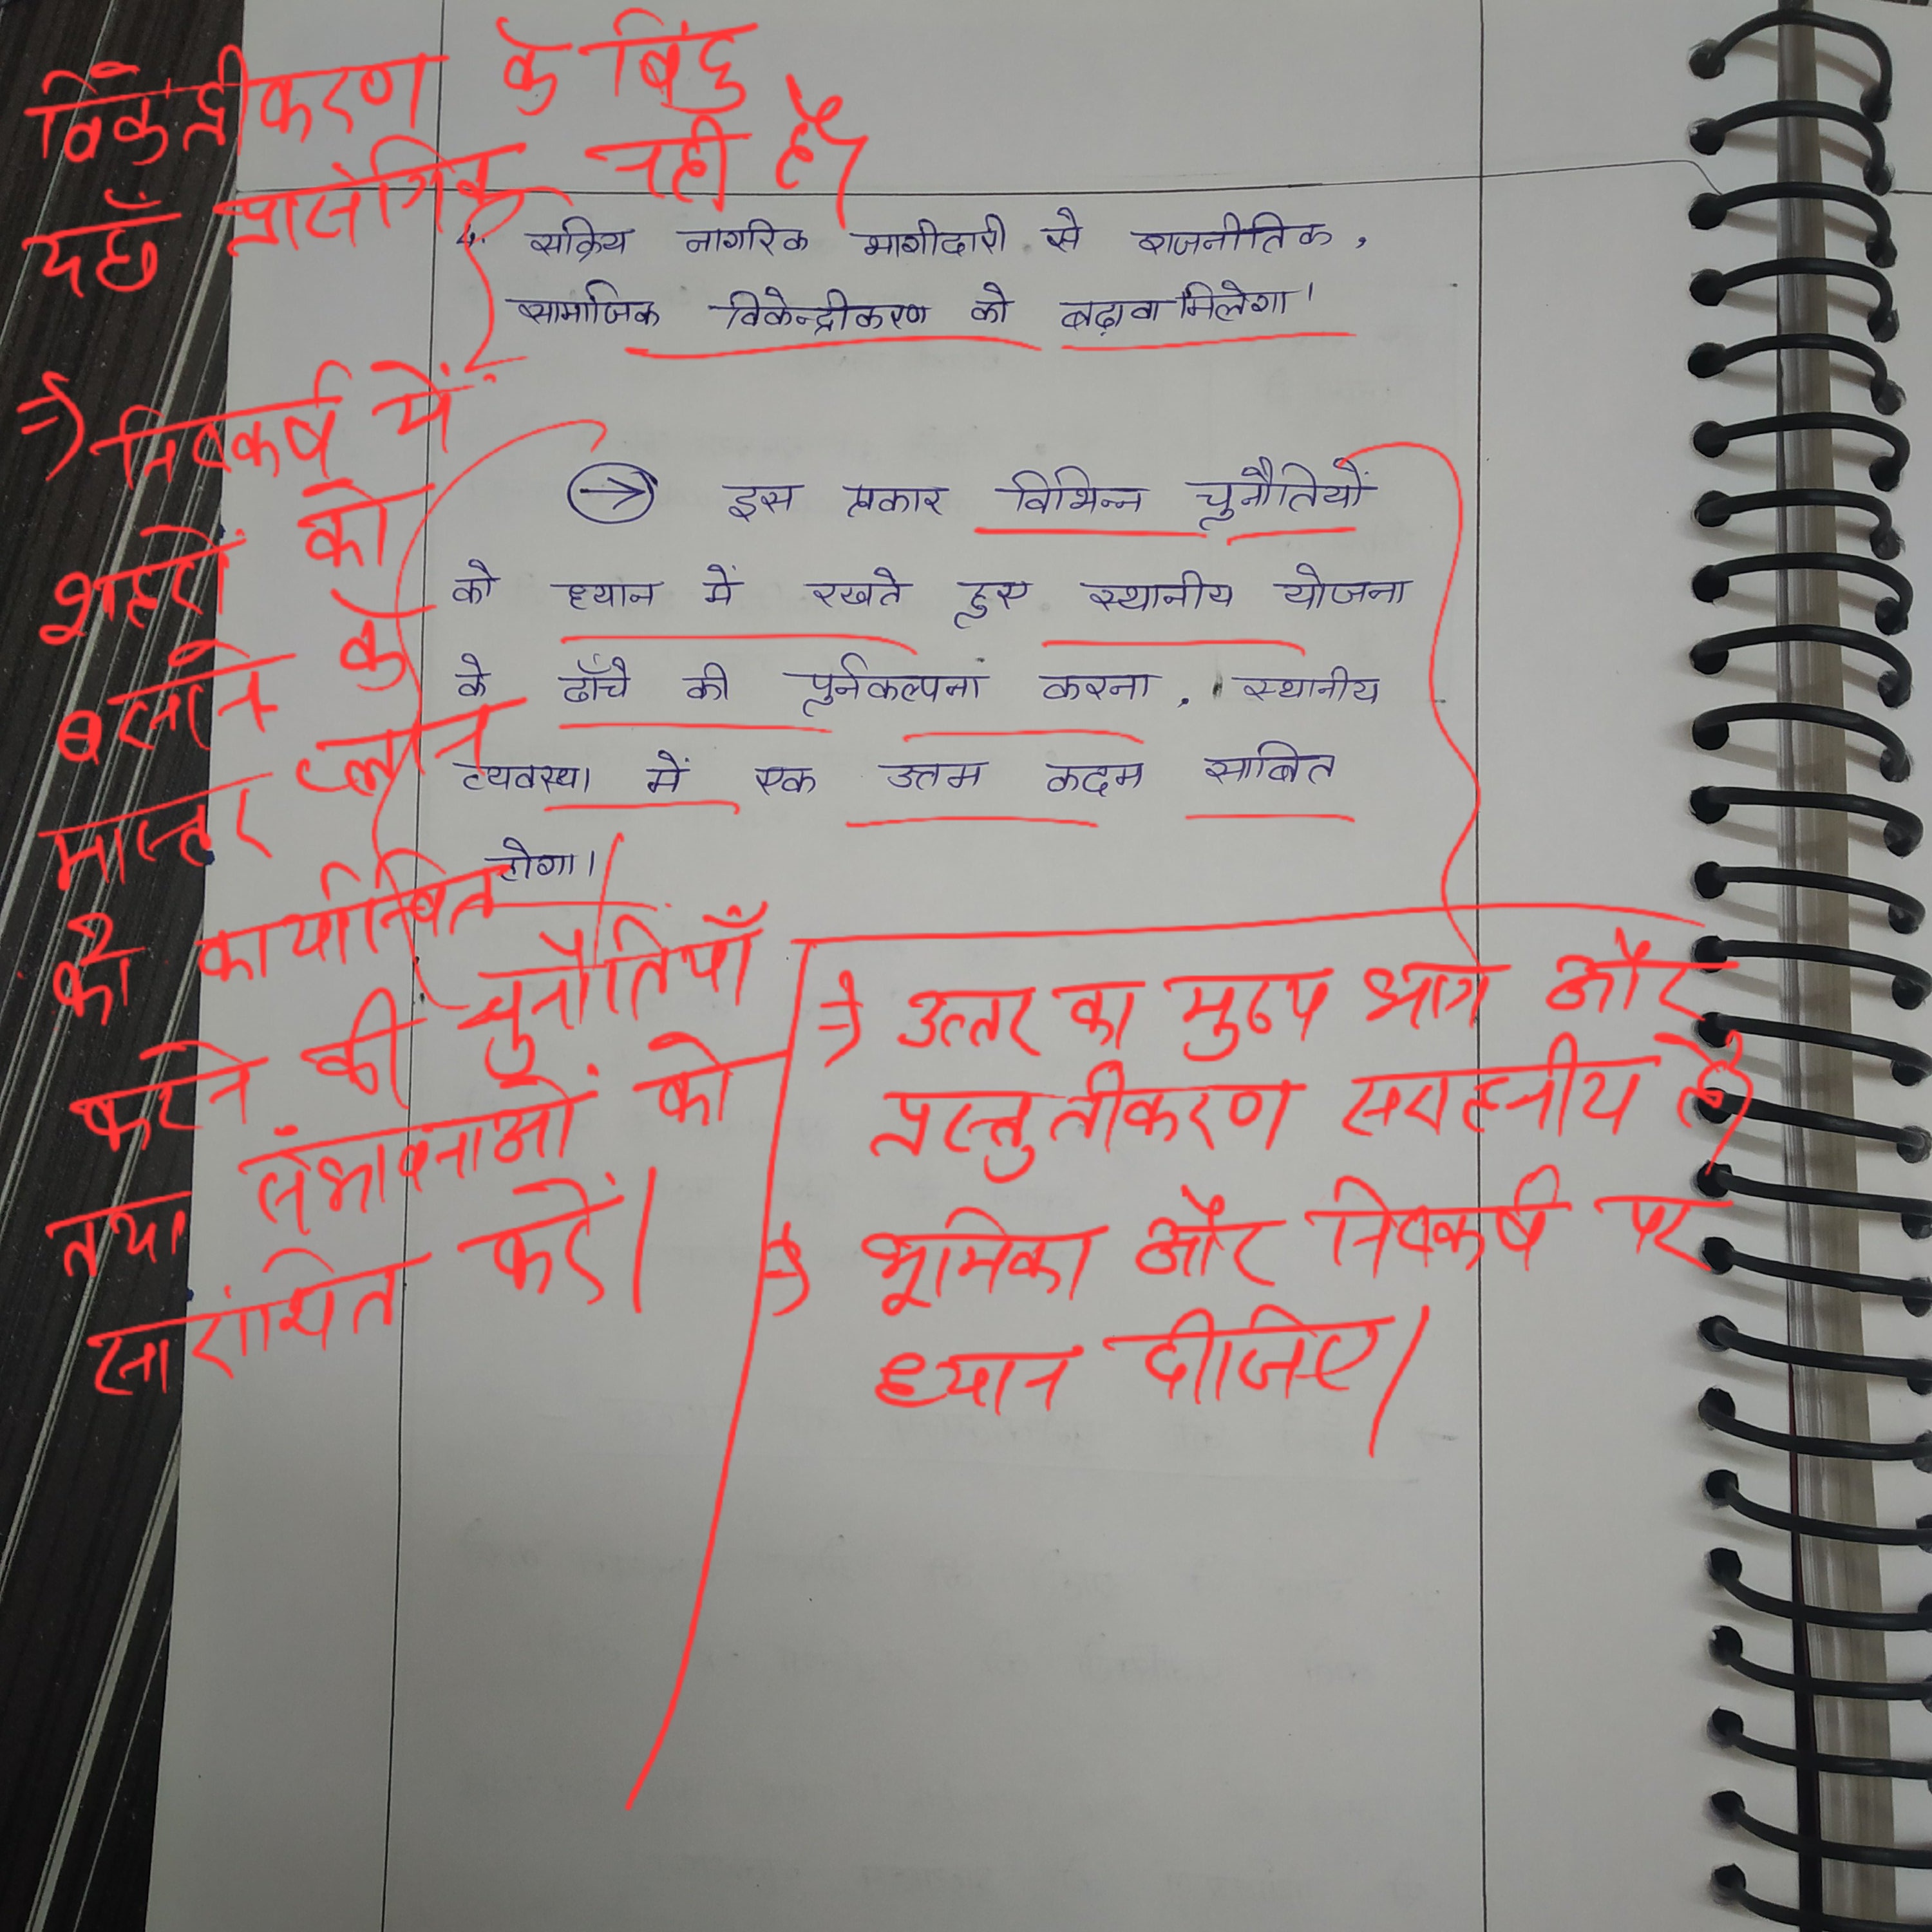 विकेंद्रीकरण के बिंदु
यहाँ प्रासंगिक नही है।
4. सक्रिय नागरिक भागीदारी से राजनीतिक,
सामाजिक विकेन्द्रीकरण को बढ़ावा मिलेगा।
→ इस प्रकार विभिन्न चुनौतियों
को ध्यान में रखते हुए स्थानीय योजना
के ढाँचे की पुर्नकल्पना करना, स्थानीय
व्यवस्था में एक उत्तम कदम साबित
होगा।
⇒ निष्कर्ष में
शहरों को
बसाने के
मास्टर प्लान
को कार्यान्वित
करने की चुनौतियाँ
तथा संभावनाओं को
सारांशित करें।
⇒ उत्तर का मुख्य भाग और
प्रस्तुतीकरण सराहनीय है।
⇒ भूमिका और निष्कर्ष पर
ध्यान दीजिए।